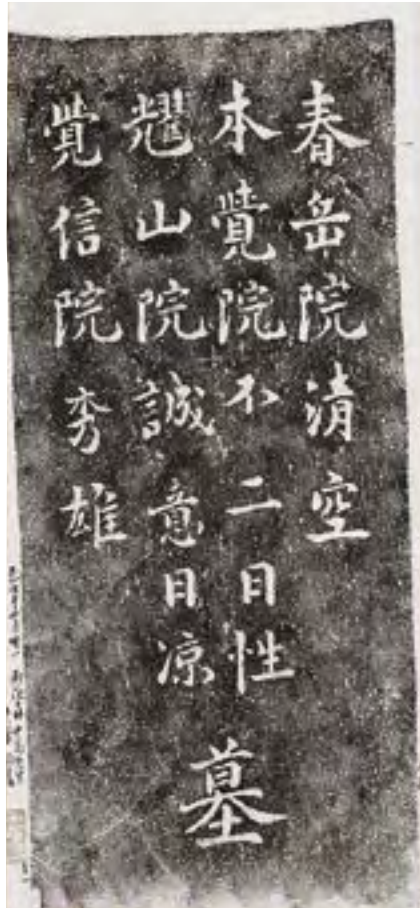 春岳院清空
本覺院不二日性
耀山院誠意日凉
覺信院秀雄
墓